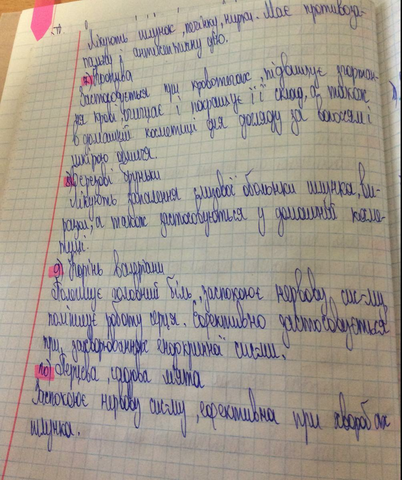 Лікують шлунок, печінку, нирки. Має протизапальну і антисептичну дію.
7) Кропива
Застосовується при кровотечах, підвищує згортання крові, очищує і покращує її склад, а також
в домашній косметиці для догляду за волоссям і
шкірою обличчя.
8) Березові бруньки
Лікують запалення слизової оболонки шлунка, виразки, а також застосовуються у домашній косметиці.
9) Корінь валеріани
Полегшує головний біль, заспокоює нервову сис-му,
поліпшує роботу серця. Ефективно застосовується
при захворюваннях ендокринної сис-ми.
10) Перцева, садова м'ята
Заспокоює нервову сис-му, ефективна при хворобах
шлунка.